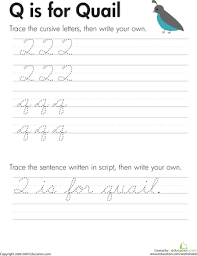 Q is for Quail
Trace the cursive letters, then write your own.
Q Q Q
Q Q Q
q q q q
q q q q
Trace the sentence written in script, then write your own.
Q is for quail.
Created by:
education.com
www.education.com/worksheets